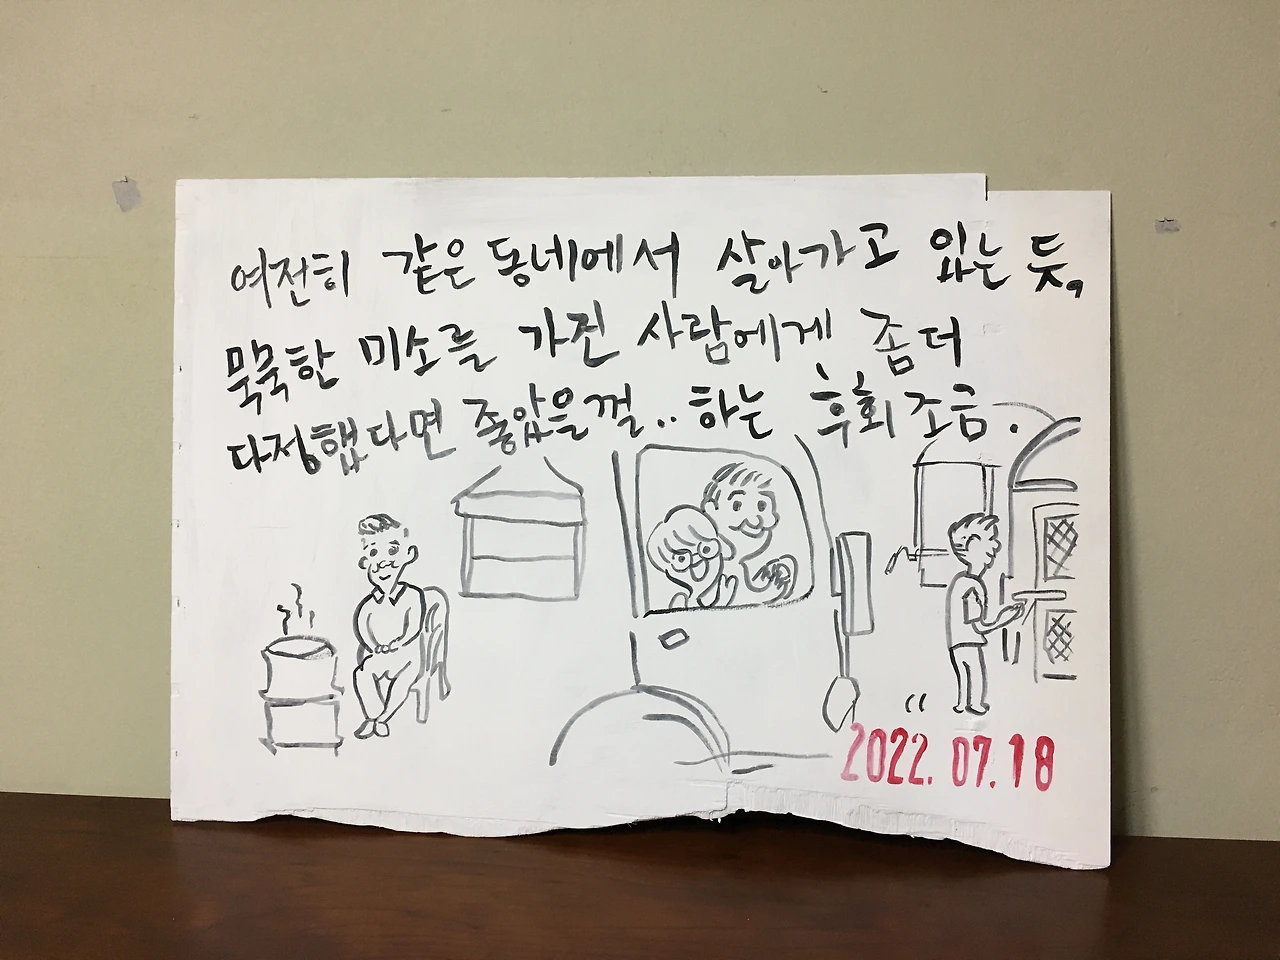 여전히 같은 동네에서 살아가고 있는 듯,
묵묵한 미소를 가진 사람에게 좀 더
다정했다면 좋았을껄.. 하는 후회 조금.
2022. 07. 18